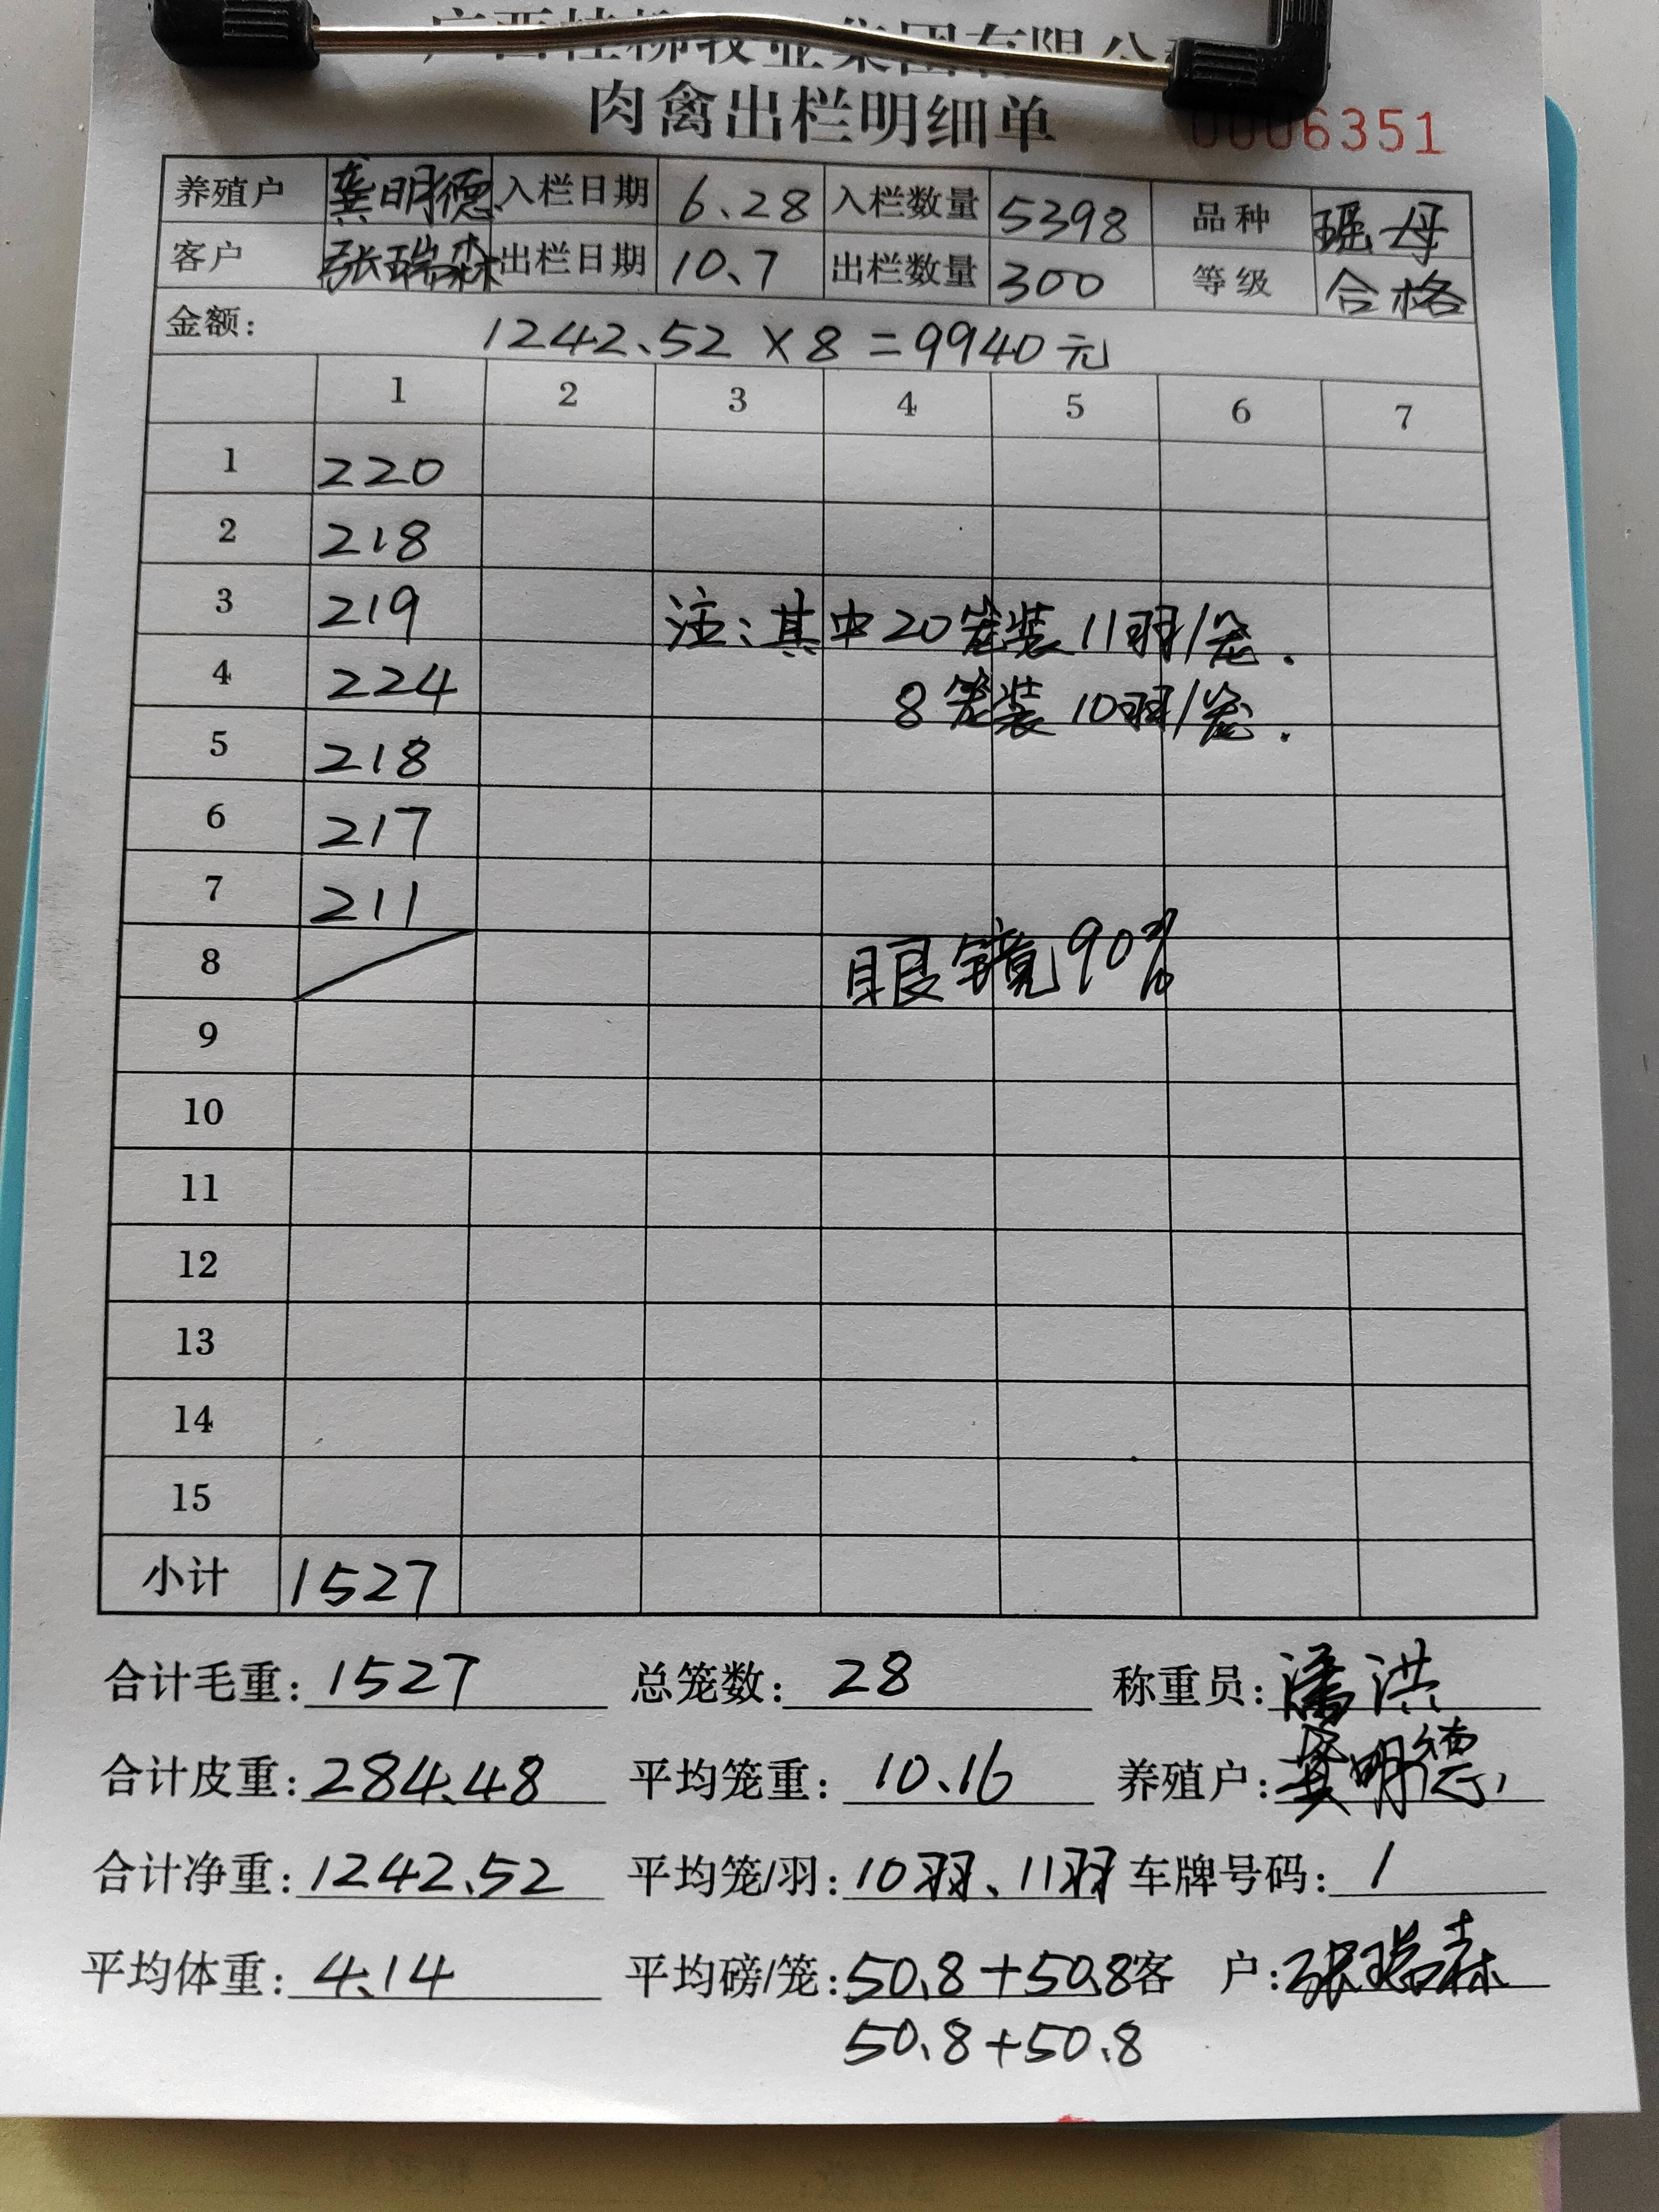 广西桂柳牧业集团有限公司
肉禽出栏明细单
0006351
养殖户 龚明德 入栏日期 6.28 入栏数量 5398 品种 瑶母
客户 张瑞森 出栏日期 10.7 出栏数量 300 等级 合格
金额: 1242.52×8=9940元
1 2 3 4 5 6 7
1 220
2 218
3 219 注:其中20笼装11羽/笼.
4 224 8笼装10羽/笼.
5 218
6 217
7 211
8 眼镜90%
9
10
11
12
13
14
15
小计 1527
合计毛重: 1527 总笼数: 28 称重员: 潘洪
合计皮重: 284.48 平均笼重: 10.16 养殖户: 龚明德
合计净重: 1242.52 平均笼/羽: 10羽、11羽 车牌号码: 1
平均体重: 4.14 平均磅/笼: 50.8+50.8 客户: 张瑞森
50.8+50.8